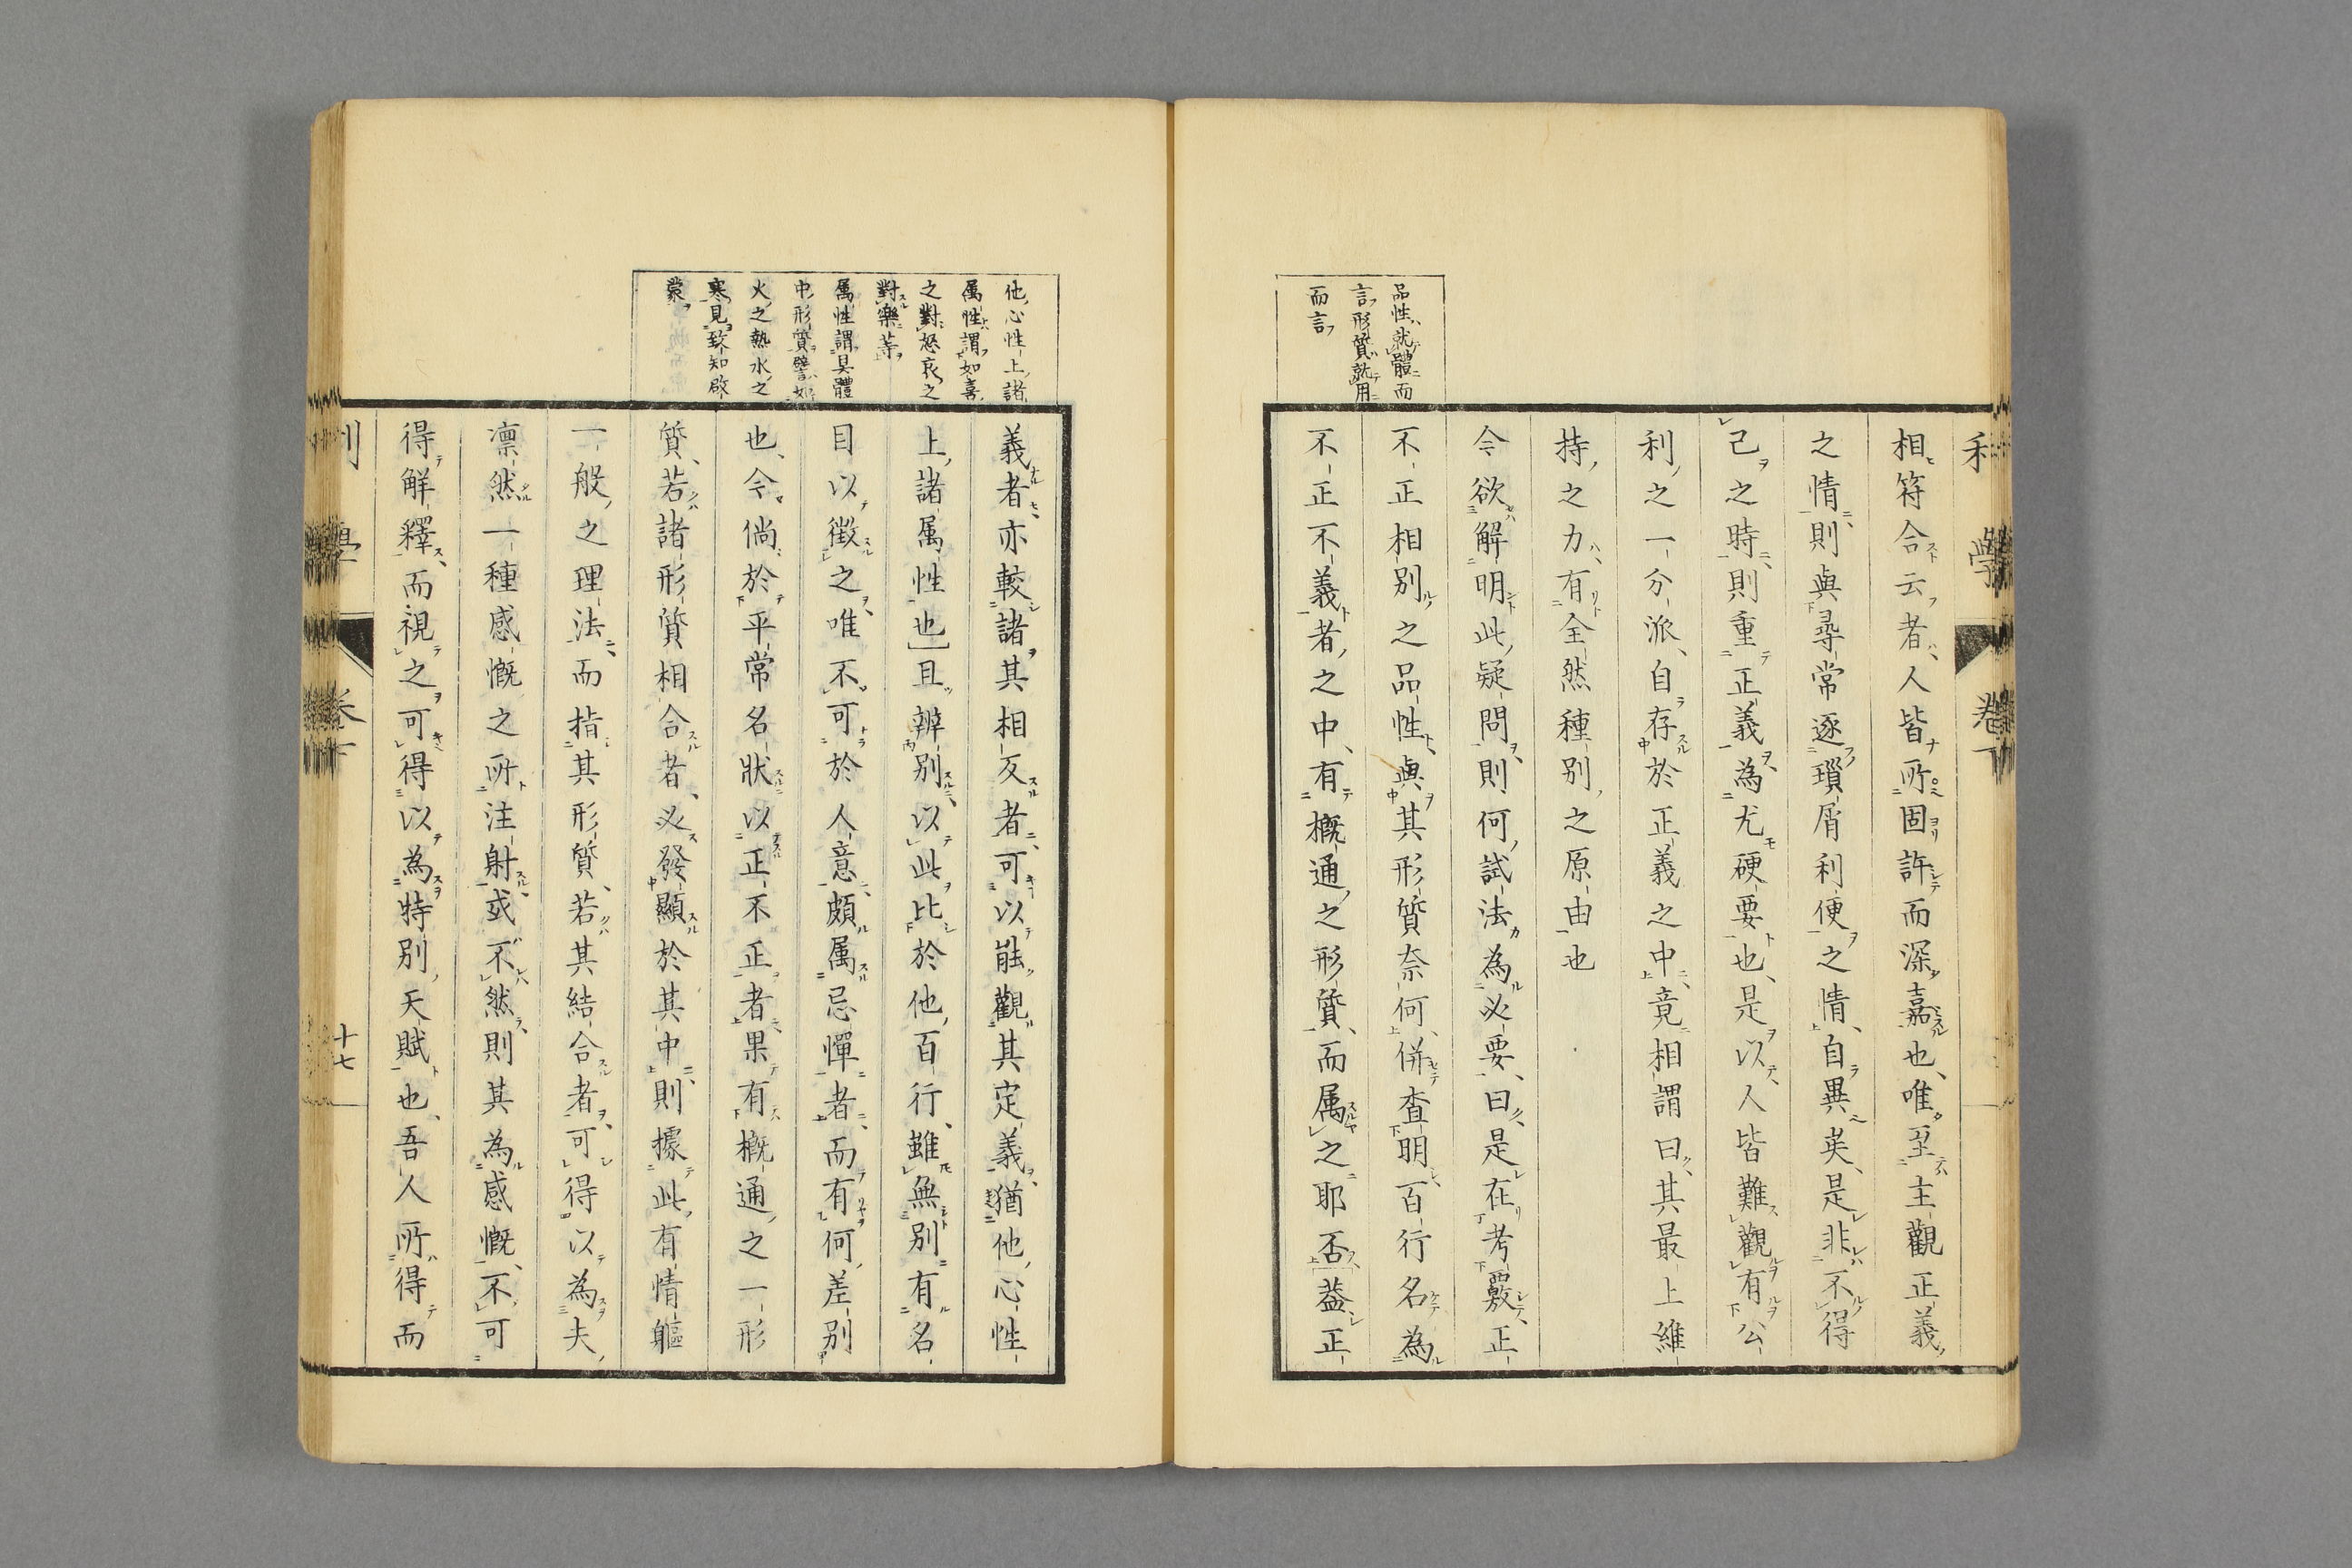 品性就體而
言形質就用
而言
相符合云者、人皆所固許而深嘉也、唯至主觀正義
之情、則與尋常逐瑣屑利便之情、自異矣、是非不得
己之時、則重正義、為尤硬要也、是以、人皆難觀有公
利之一分派、自存於正義之中、竟相謂曰、其最上維
持之力、有全然種別之原由也
今欲解明此疑問、則何試法為必要、曰是在考覈、正
不正相別之品性、與其形質奈何、併査明百行名為
不正不義者之中、有概通之形質、而属之耶否、蓋正
他心性上諸
属性謂如喜
之對怒哀之
對樂等
属性謂具體
中形質譬如
火之熱水之
寒見致知啟
蒙
義者、亦較諸其相反者、可以能觀其定義、猶他心性
上諸属性也」且辨別、以此比於他百行、雖無別有名
目以徵之、唯不可於人意、頗属忌憚者、而有何差別
也、今倘於平常名狀、以正不正者、果有概通之一形
質、若諸形質相合者、必發顯於其中、則據此有情軀
一般之理法、而指其形質、若其結合者、可得以為夫
凛然一種感慨之所注射、或不然則其為感慨、不可
得解釋、而視之可得以為特別天賦也、吾人所得而
利學 卷下
十七